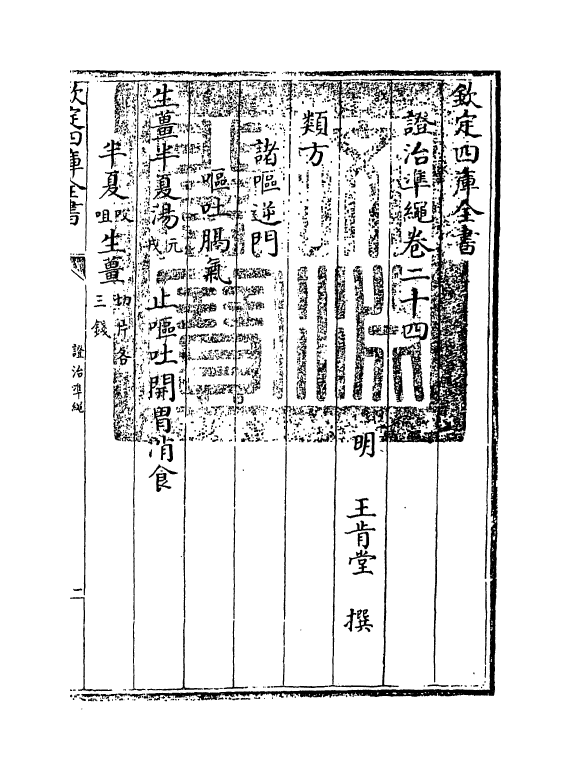 欽定四庫全書
證治準繩卷二十四
明 王肯堂 撰
類方
諸嘔逆門
嘔吐膈氣
生薑半夏湯 元戎 止嘔吐開胃消食
半夏 㕮咀 生薑 切片各三錢
欽定四庫全書
證治準繩